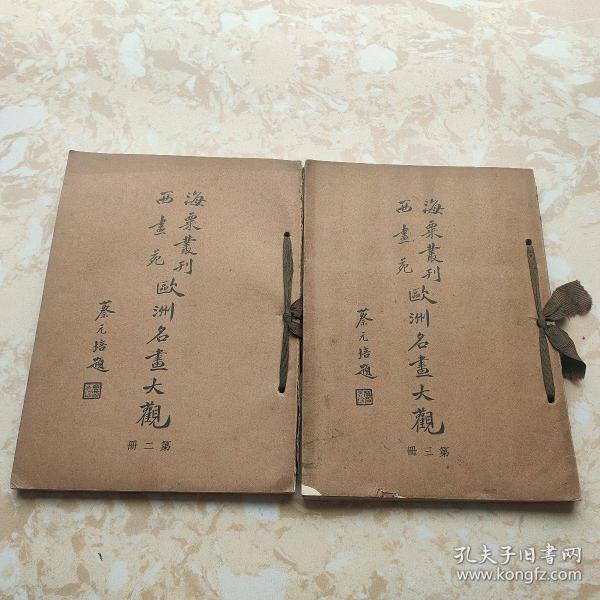 海粟叢刊
西畫苑
歐洲名畫大觀
蔡元培題
第二冊
海粟叢刊
西畫苑
歐洲名畫大觀
蔡元培題
第三冊
孔夫子旧书网
www.kongfz.com